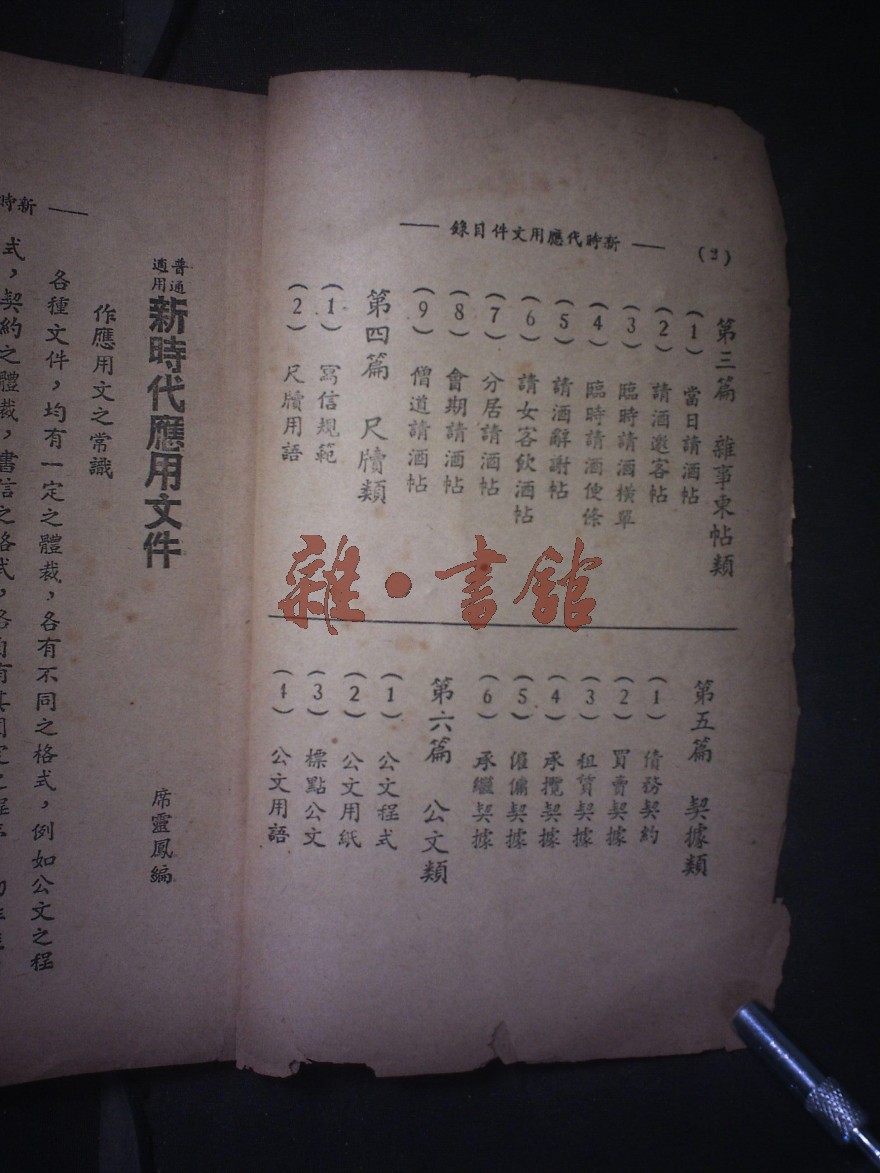 (2)
— 新時代應用文件目錄 —
第三篇 雜事柬帖類
(1) 當日請酒帖
(2) 請酒邀客帖
(3) 臨時請酒橫單
(4) 臨時請酒便條
(5) 請酒辭謝帖
(6) 請女客飲酒帖
(7) 分居請酒帖
(8) 會期請酒帖
(9) 僧道請酒帖
第四篇 尺牘類
(1) 寫信規範
(2) 尺牘用語
第五篇 契據類
(1) 債務契約
(2) 買賣契據
(3) 租賃契據
(4) 承攬契據
(5) 僱傭契據
(6) 承繼契據
第六篇 公文類
(1) 公文程式
(2) 公文用紙
(3) 標點公文
(4) 公文用語
雜·書館
新時
普通適用 新時代應用文件
席靈鳳編
作應用文之常識
各種文件，均有一定之體裁，各有不同之格式，例如公文之程
式，契約之體裁，書信之格式，各有其固定之程